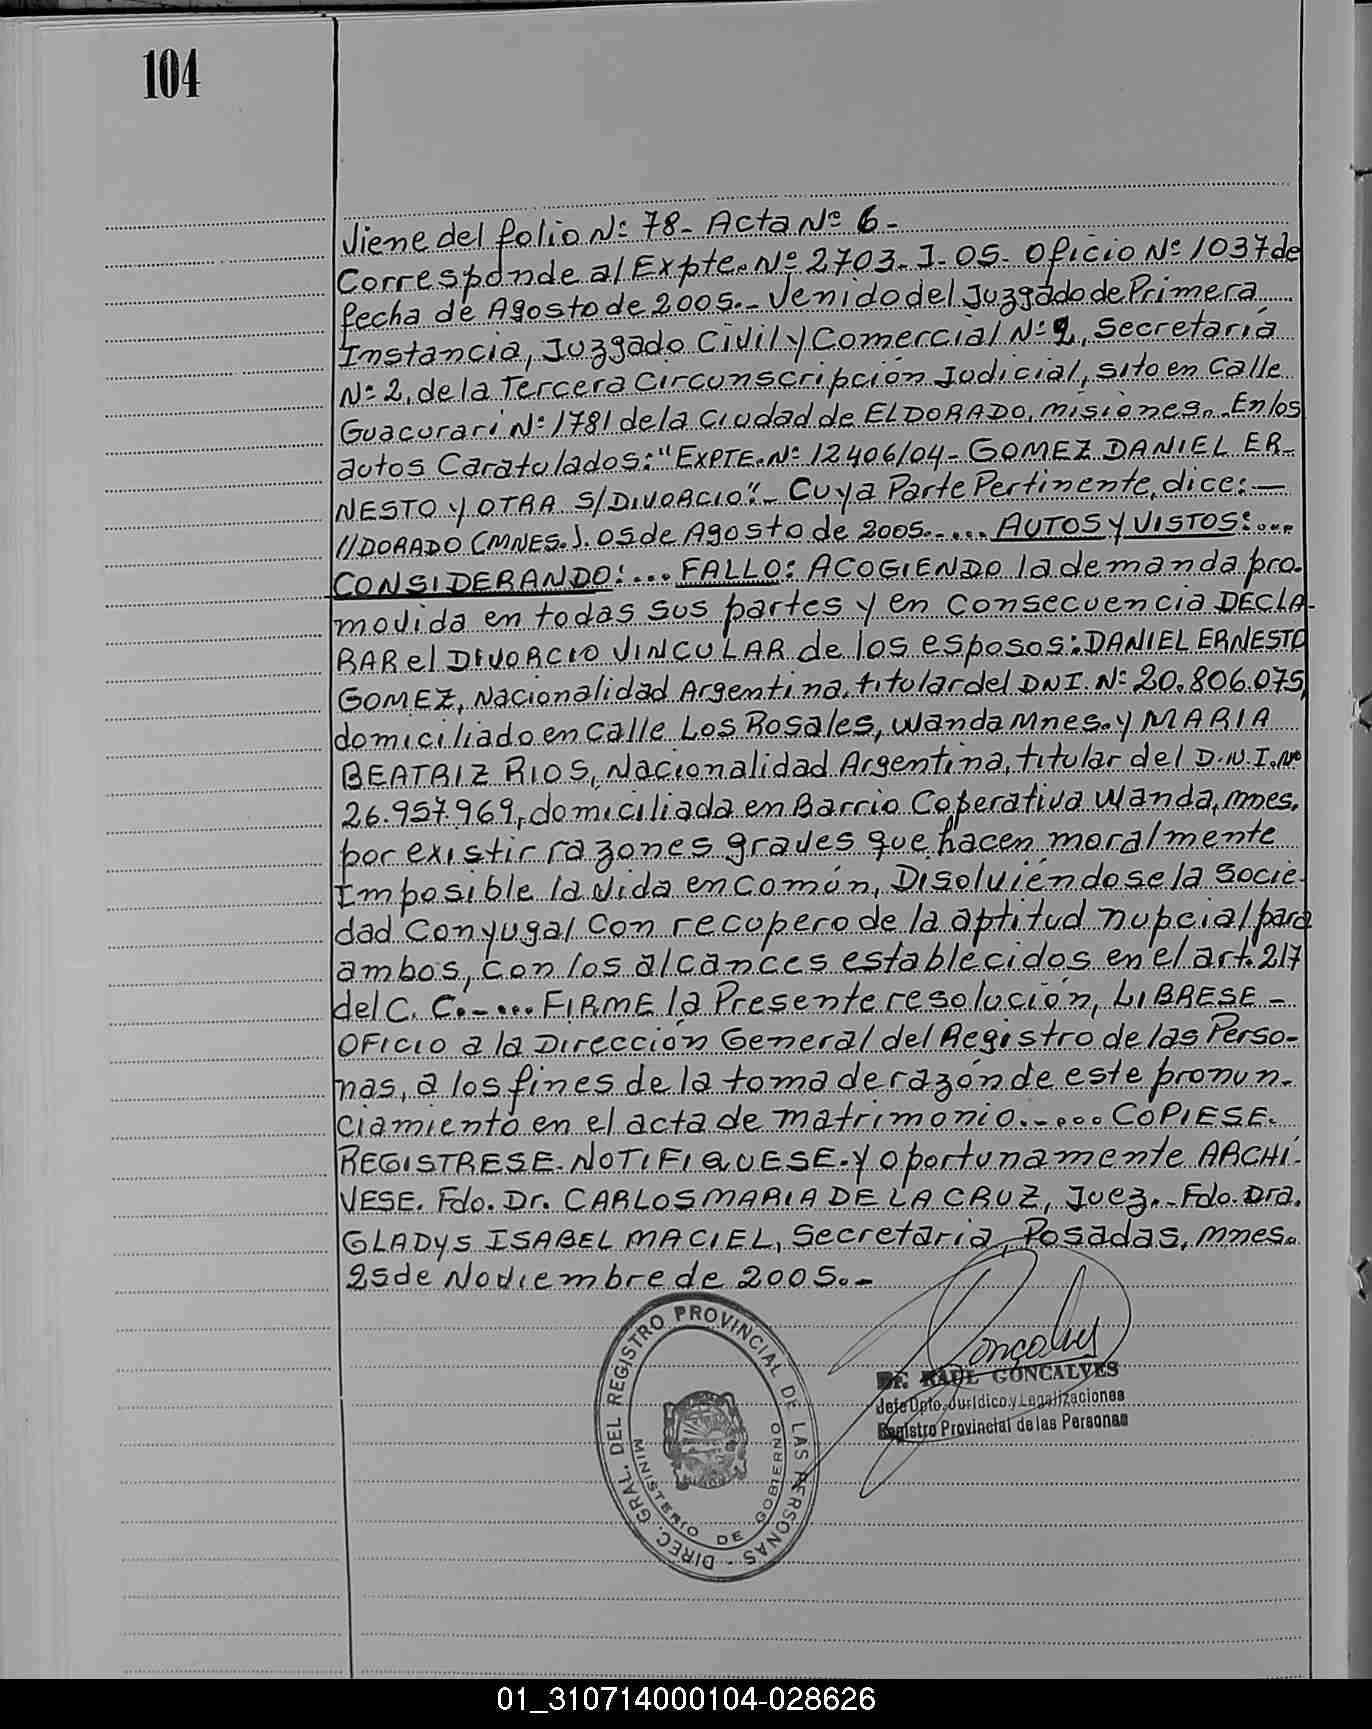 104
Viene del folio Nº 78- Acta Nº 6-
Corresponde al Expte. Nº 2703-I-05- Oficio Nº 1037 de
fecha de Agosto de 2005.- Venido del Juzgado de Primera
Instancia, Juzgado Civil y Comercial Nº 2, Secretaría
Nº 2, de la Tercera Circunscripción Judicial, sito en Calle
Guacurarí Nº 1781 de la Ciudad de ELDORADO, Misiones.- En los
autos Caratulados: "EXPTE. Nº 12406/04- GOMEZ DANIEL ER-
NESTO Y OTRA S/DIVORCIO".- Cuya Parte Pertinente, dice:—
//DORADO (MNES.). 05 de Agosto de 2005.-... AUTOS Y VISTOS:...
CONSIDERANDO:... FALLO: ACOGIENDO la demanda pro-
movida en todas sus partes y en consecuencia DECLA-
RAR el DIVORCIO VINCULAR de los esposos: DANIEL ERNESTO
GOMEZ, Nacionalidad Argentina, titular del DNI. Nº 20.806.075,
domiciliado en Calle Los Rosales, Wanda Mnes. y MARIA
BEATRIZ RIOS, Nacionalidad Argentina, titular del D.N.I. Nº
26.957.969, domiciliada en Barrio Coperativa Wanda, Mnes.
por existir razones graves que hacen moralmente
Imposible la vida en Común, Disolviéndose la Socie-
dad Conyugal Con recupero de la aptitud nupcial para
ambos, con los alcances establecidos en el art. 217
del C. C.-... FIRME la Presente resolución, LIBRESE -
OFICIO a la Dirección General del Registro de las Perso-
nas, a los fines de la toma de razón de este pronun-
ciamiento en el acta de matrimonio.-... COPIESE.
REGISTRESE. NOTIFIQUESE. y oportunamente ARCHI-
VESE. Fdo. Dr. CARLOS MARIA DE LA CRUZ, Juez.- Fdo. Dra.
GLADYS ISABEL MACIEL, Secretaria, Posadas, Mnes.
25 de Noviembre de 2005.-
DIREC. GRAL. DEL REGISTRO PROVINCIAL DE LAS PERSONAS -
MINISTERIO DE GOBIERNO
Goncalves
Dr. RAUL GONCALVES
Jefe Dpto. Jurídico y Legalizaciones
Registro Provincial de las Personas
01_310714000104-028626